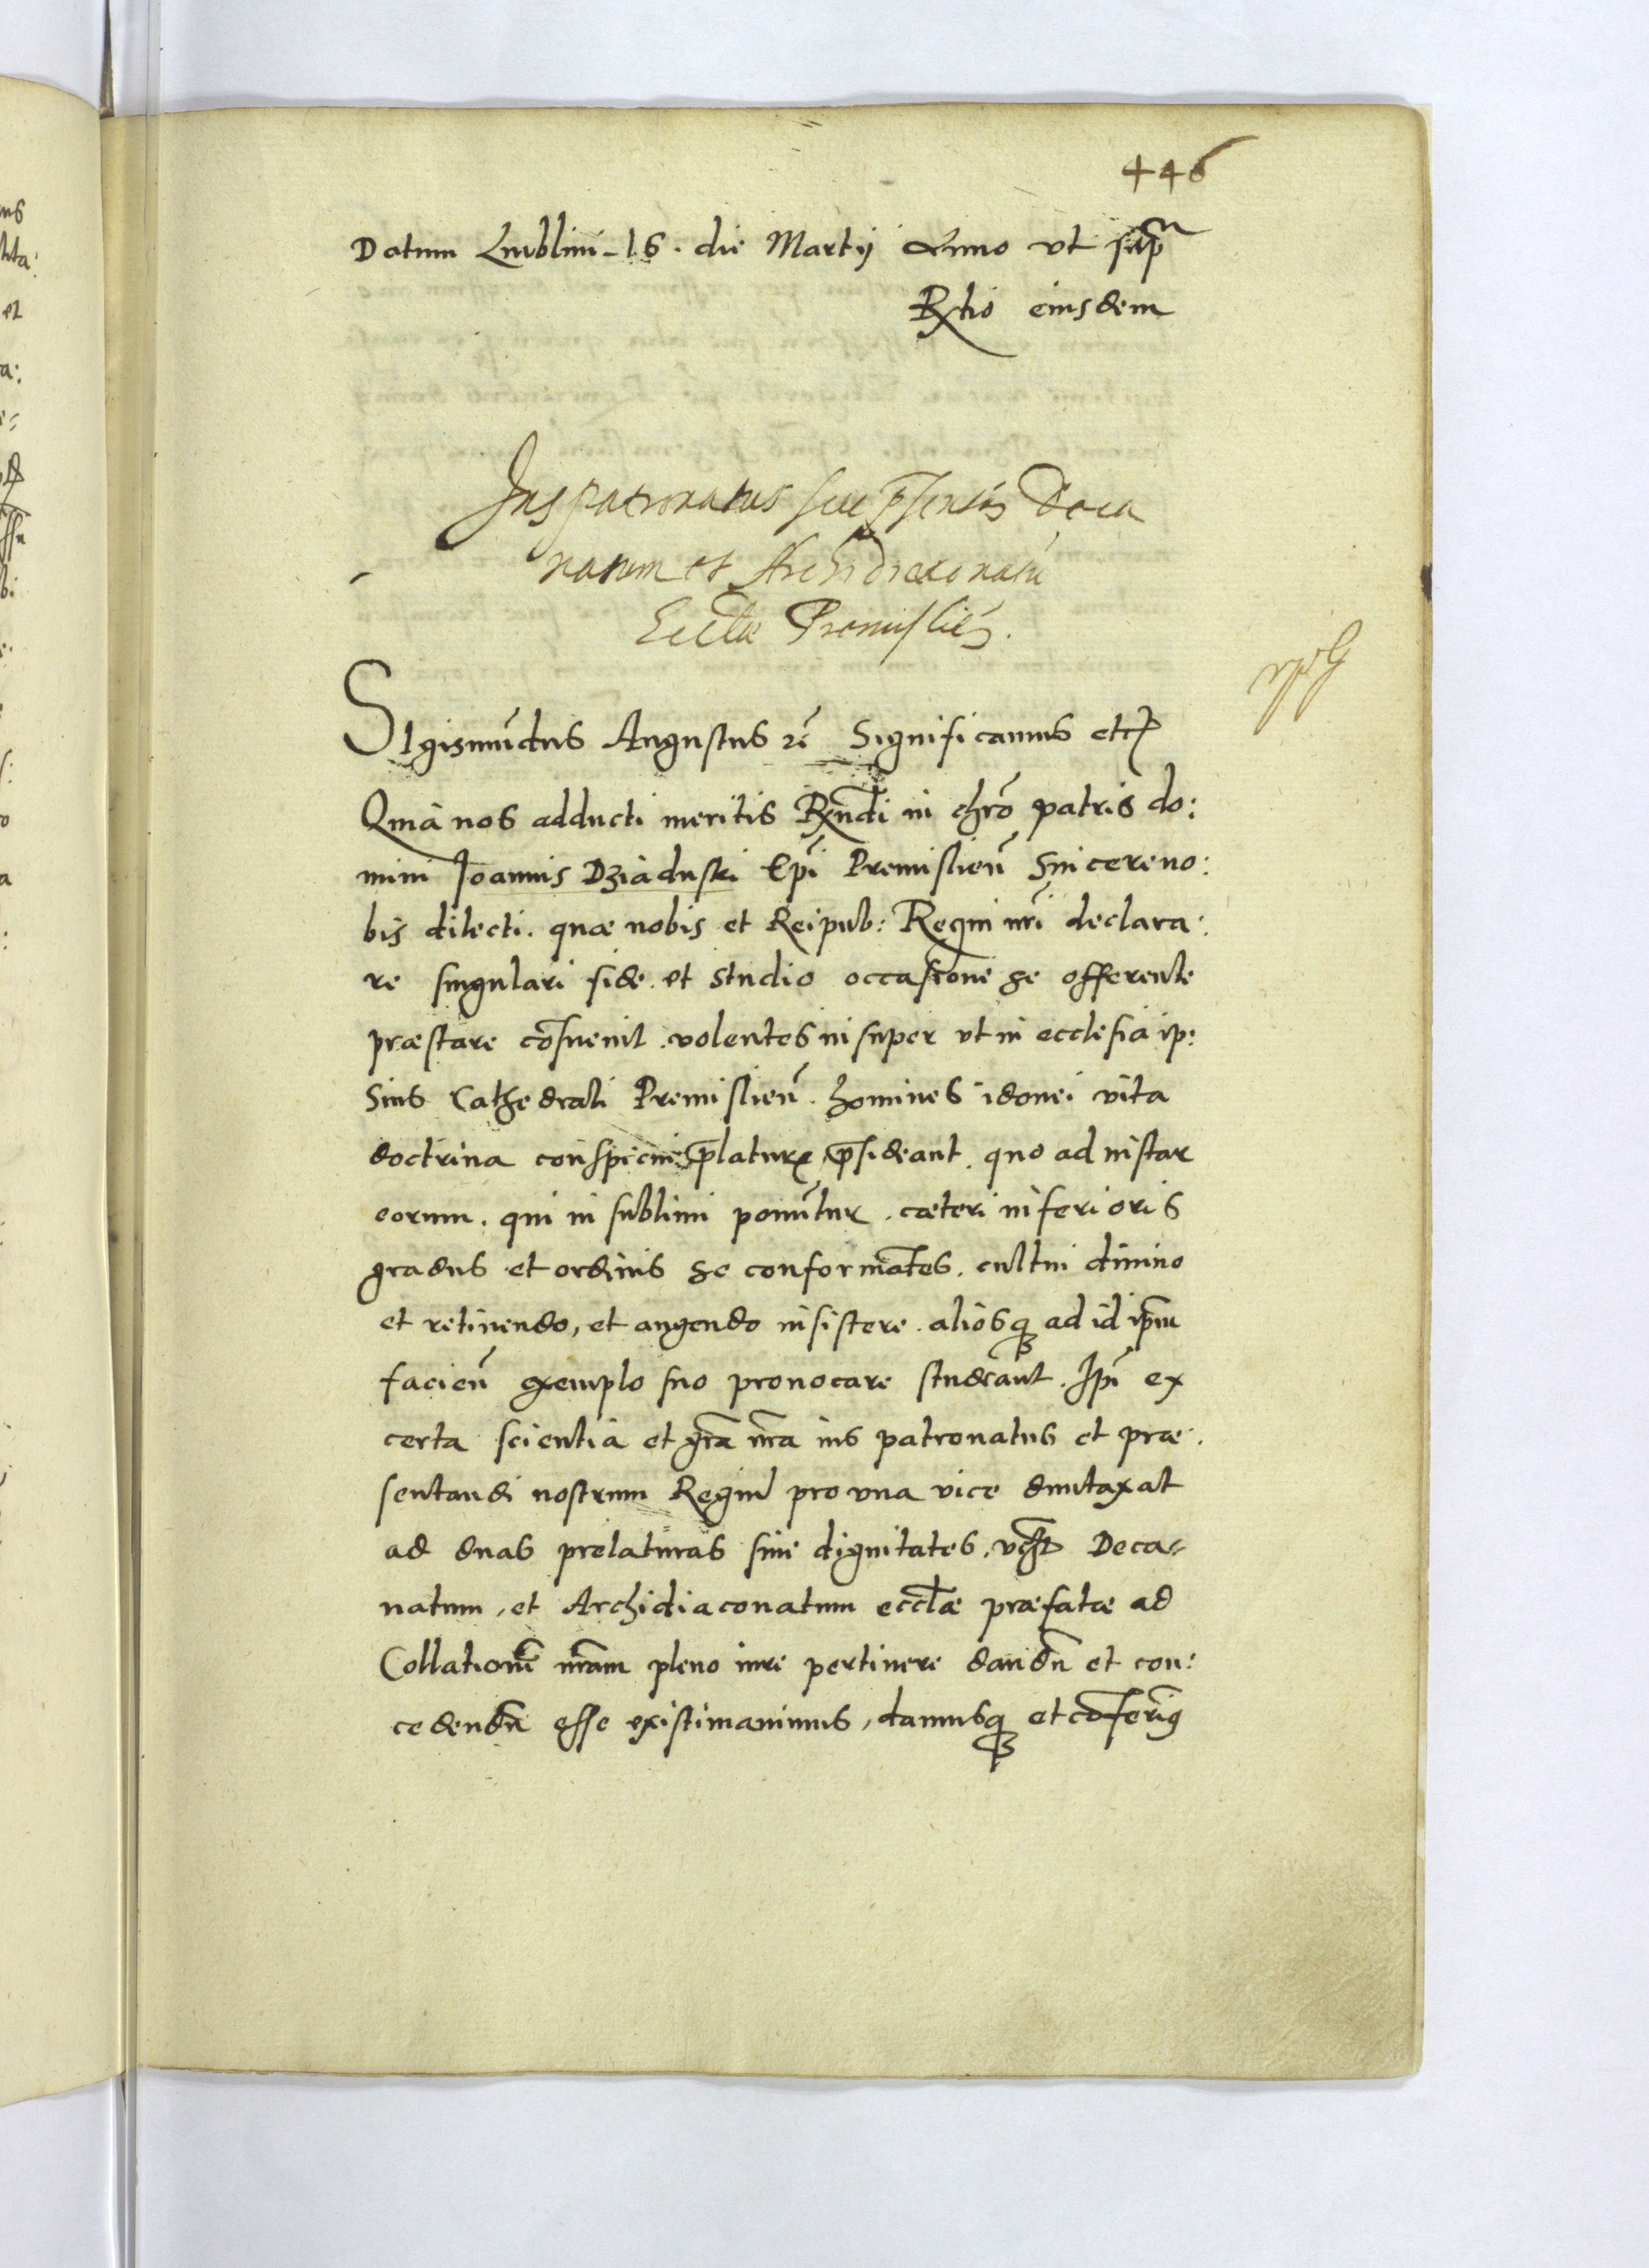 446
Datum Lublini 16. die Martij Anno vt supra
Rtio eiusdem
Ius patronatus seu pñtañs Deca
natum et Archidiaconatũ
Ecclae Premisliẽn.
SIgismũdus Augustus rẽ Significamus etc
Quia nos adducti meritis Rxndi in chrõ patris do:
mini Joannis Dziaduski Epĩ Premislieñ Sincere no:
bis dilecti. quæ nobis et Reipub: Regni nrĩ declara:
re singulari fide et studio occasione se offerente
præstare cõsueuit. volentes insuper vt in ecclesia ip:
sius Cathedrali Premislieñ. homines idonei vita
doctrina conspicui p̃laturæ p̃sideant. quo ad instar
eorum. qui in sublimi ponũtur. cæteri inferioris
gradus et ordinis se conformãtes. cultui diuino
et retinendo, et augendo insistere. aliosq ad id ip̃m
facieñ exemplo suo prouocare studeant. Ipĩ ex
certa scientia et grã nrã ius patronatus et præ:
sentandi nostrum Regiũ pro vna vice duntaxat
ad duas prelaturas siue dignitates. vczt Deca-
natum, et Archidiaconatum ecclæ præfatæ ad
Collationẽ nrãm pleno iure pertinere dandũ et con:
cedendũ esse existimauimus, damusq et cõferimꝰ